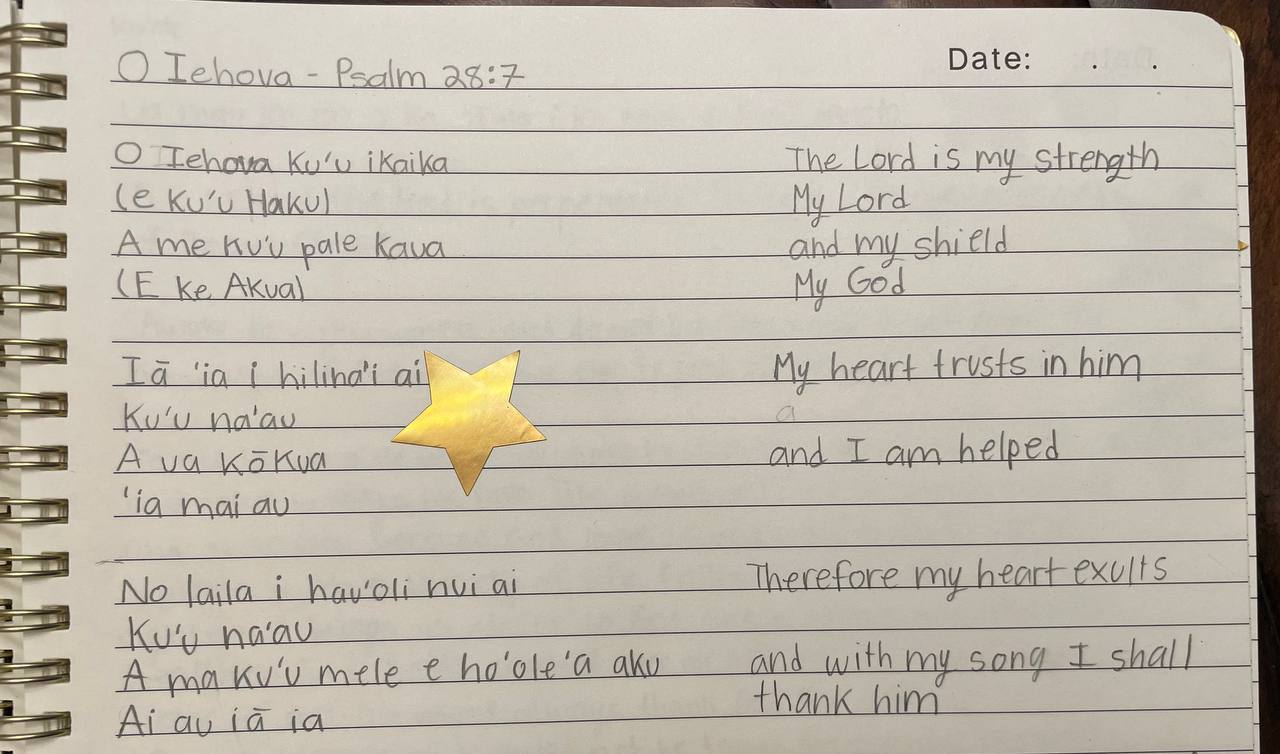 O Iehova - Psalm 28:7
Date: . .
O Iehova Ku'u ikaika The Lord is my strength
(e Ku'u Haku) My Lord
A me Ku'u pale Kaua and my shield
(E ke Akua) My God
Iā 'ia i hilina'i ai My heart trusts in him
Ku'u na'au a
A ua Kōkua and I am helped
'ia mai au
No laila i hau'oli nui ai Therefore my heart exults
Ku'u na'au
A ma Ku'u mele e ho'ole'a aku and with my song I shall
thank him
Ai au iā ia